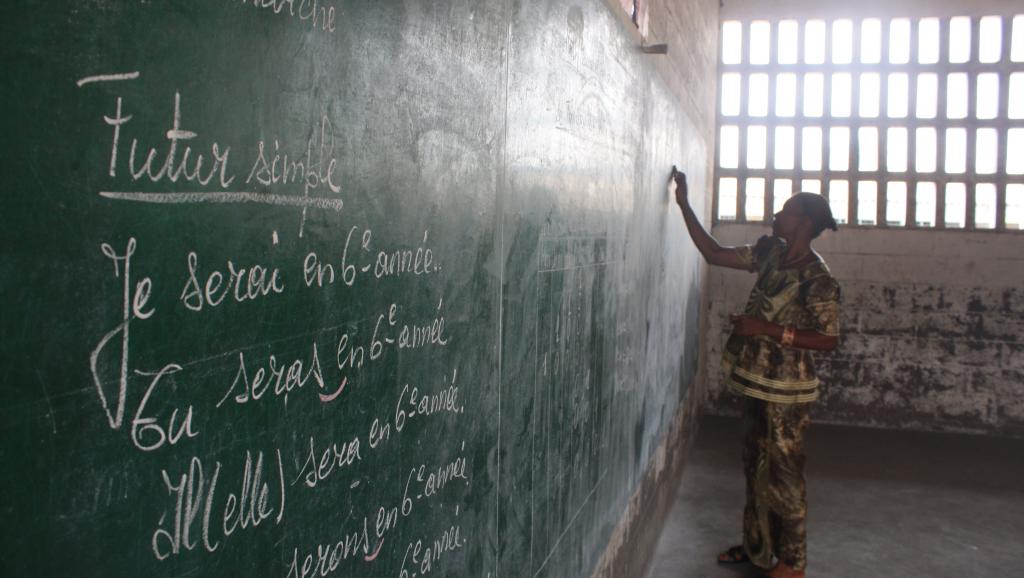 Futur simple
Je serai en 6e année.
Tu seras en 6e année
Il(elle) sera en 6e année.
serons en 6e année
6e année.